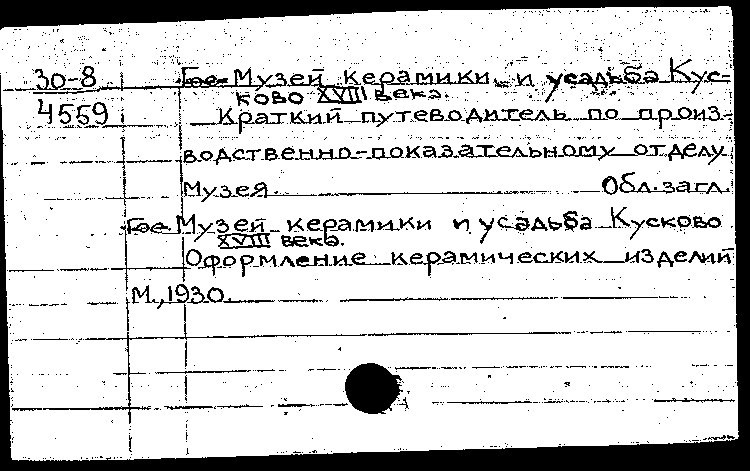 30-8 Гос. Музей керамики и усадьба Кус-
ково XVIII века.
4559 Краткий путеводитель по произ-
водственно-показательному отделу
Музея. Обл. загл.
Гос. Музей керамики и усадьба Кусково
XVIII века.
Оформление керамических изделий
М., 1930.